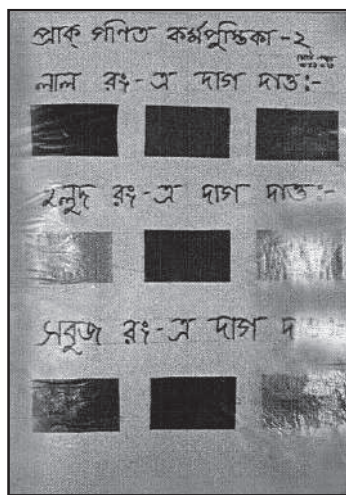 প্রাক্ গণিত কর্মপুস্তিকা -২
লাল রং-এ দাগ দাও :-
হলুদ রং-এ দাগ দাও :-
সবুজ রং-এ দাগ